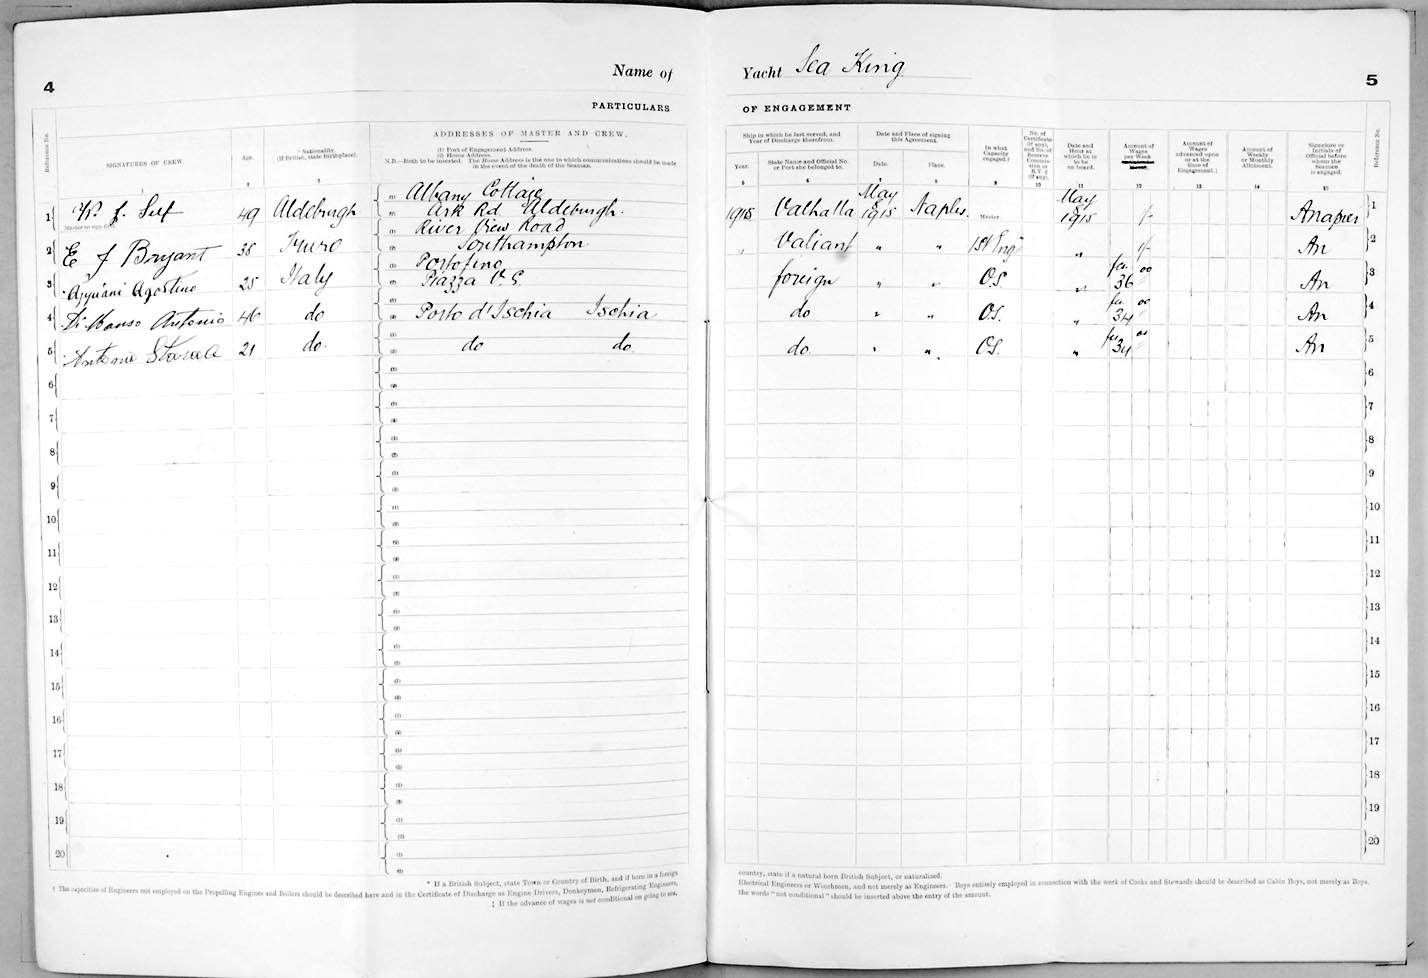 4
Name of
Yacht Sea King
5
PARTICULARS
OF ENGAGEMENT
Reference No.
SIGNATURES OF CREW.
Age.
* Nationality.
(If British, state birthplace).
ADDRESSES OF MASTER AND CREW.
(1) Port of Engagement Address.
(2) Home Address.
N.B.—Both to be inserted. The Home Address is the one to which communications should be made
in the event of the death of the Seaman.
Ship in which he last served, and
Year of Discharge therefrom.
Year.
State Name and Official No.
or Port she belonged to.
Date and Place of signing
this Agreement.
Date.
Place.
In what
Capacity
engaged.†
No. of
Certificate
(if any),
and No. of
Reserve
Commis-
sion or
R.V. 2
(if any).
Date and
Hour at
which he is
to be
on board.
Amount of
Wages
per Week
Amount of
Wages
advanced upon
or at the
time of
Engagement.‡
Amount of
Weekly
or Monthly
Allotment.
Signature or
Initials of
Official before
whom the
Seaman
is engaged.
Reference No.
1 W. J. Self 49 Aldeburgh (1) Albany Cottage
Master to sign first. (2) Ark Rd Aldeburgh.
1915 Valhalla May 8 1915 Naples. Master May 8 1915 /- ANapier 1
2 E J Bryant 38 Truro (1) River View Road
(2) Southampton
" Valiant " " 1st Eng " /- An 2
3 Agostino 25 Italy (1) Portofino
(2) Piazza V. E.
foreign " " O.S " 36 00 An 3
4 Antonio 46 do (1)
(2) Porto d'Ischia Ischia
do " " O.S. " 34 00 An 4
5 Antonio 21 do. (1)
(2) do do.
do " " O.S. " 34 00 An 5
6 (1) (2) 6
7 (1) (2) 7
8 (1) (2) 8
9 (1) (2) 9
10 (1) (2) 10
11 (1) (2) 11
12 (1) (2) 12
13 (1) (2) 13
14 (1) (2) 14
15 (1) (2) 15
16 (1) (2) 16
17 (1) (2) 17
18 (1) (2) 18
19 (1) (2) 19
20 (1) (2) 20
* If a British Subject, state Town or Country of Birth, and if born in a foreign
country, state if a natural born British Subject, or naturalized.
† The capacities of Engineers not employed on the Propelling Engines and Boilers should be described here and in the Certificate of Discharge as Engine Drivers, Donkeymen, Refrigerating Engineers,
Electrical Engineers or Winchmen, and not merely as Engineers. Boys entirely employed in connection with the work of Cooks and Stewards should be described as Cabin Boys, not merely as Boys.
‡ If the advance of wages is not conditional on going to sea,
the words "not conditional" should be inserted above the entry of the amount.